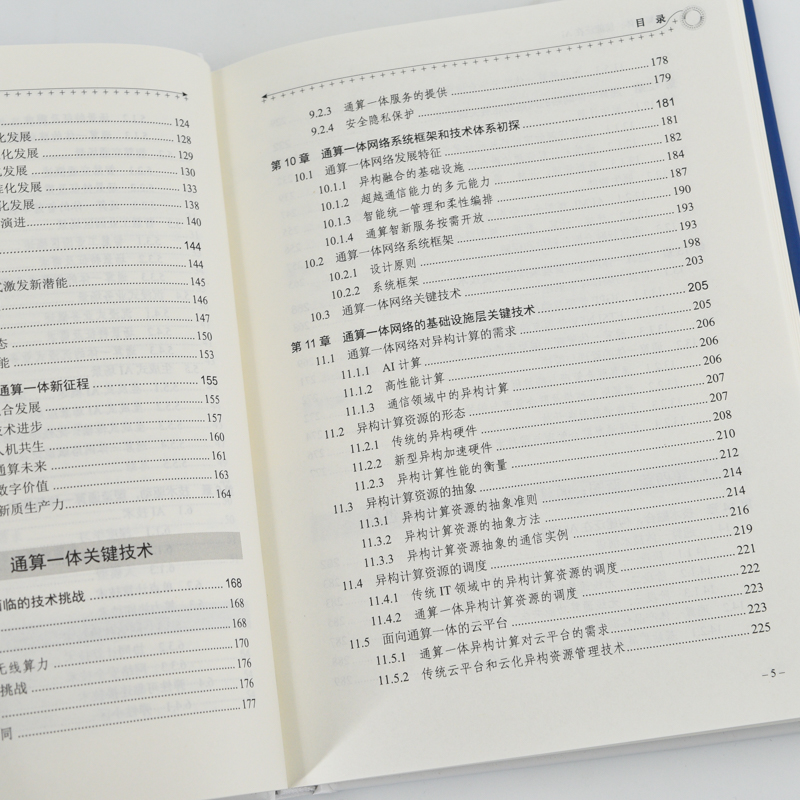 124
化发展 128
化发展 129
发展 130
化发展 133
化发展 138
演进 140
144
144
激发新潜能 145
146
147
态 150
能 153
通算一体新征程 155
合发展 155
技术进步 157
人机共生 160
通算未来 161
数字价值 163
新质生产力 164
通算一体关键技术
面临的技术挑战 168
168
168
无线算力 170
挑战 176
176
同 177
目 录
9.2.3 通算一体服务的提供 178
9.2.4 安全隐私保护 179
第 10 章 通算一体网络系统框架和技术体系初探 181
10.1 通算一体网络发展特征 181
10.1.1 异构融合的基础设施 182
10.1.2 超越通信能力的多元能力 184
10.1.3 智能统一管理和柔性编排 187
10.1.4 通算智新服务按需开放 190
10.2 通算一体网络系统框架 193
10.2.1 设计原则 193
10.2.2 系统框架 198
10.3 通算一体网络关键技术 203
第 11 章 通算一体网络的基础设施层关键技术 205
11.1 通算一体网络对异构计算的需求 205
11.1.1 AI 计算 206
11.1.2 高性能计算 206
11.1.3 通信领域中的异构计算 206
11.2 异构计算资源的形态 207
11.2.1 传统的异构硬件 207
11.2.2 新型异构加速硬件 208
11.2.3 异构计算性能的衡量 210
11.3 异构计算资源的抽象 212
11.3.1 异构计算资源的抽象准则 214
11.3.2 异构计算资源的抽象方法 214
11.3.3 异构计算资源抽象的通信实例 216
11.4 异构计算资源的调度 219
11.4.1 传统 IT 领域中的异构计算资源的调度 221
11.4.2 通算一体异构计算资源的调度 222
11.5 面向通算一体的云平台 223
11.5.1 通算一体异构计算对云平台的需求 223
11.5.2 传统云平台和云化异构资源管理技术 225
– 5 –